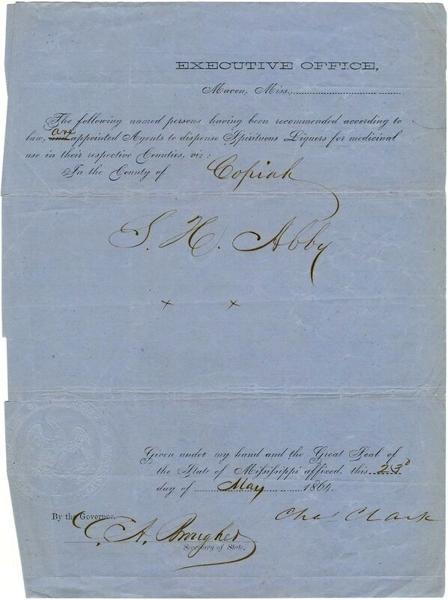 EXECUTIVE OFFICE,
Macon, Miss.,
The following named persons having been recommended according to
are
law, and appointed Agents to dispense Spirituous Liquors for medicinal
use in their respective Counties, viz:
In the County of Copiah
S. H. Abby
x x
Given under my hand and the Great Seal of
the State of Mississippi affixed, this 23d
day of May 1864.
By the Governor. Chas Clark
C. A. Brougher
Secretary of State.